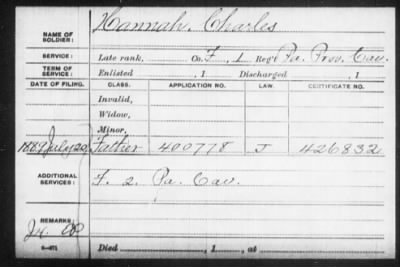 NAME OF SOLDIER: Hannah, Charles
SERVICE: Late rank, Co. F, 1 Reg't Pa. Prov. Cav.
TERM OF SERVICE: Enlisted , 1 Discharged , 1
DATE OF FILING. CLASS. APPLICATION NO. LAW. CERTIFICATE NO.
Invalid,
Widow,
Minor,
1889 July 29 Father 400778 J 426832
ADDITIONAL SERVICES: F. 2. Pa. Cav.
REMARKS:
Died , 1 , at